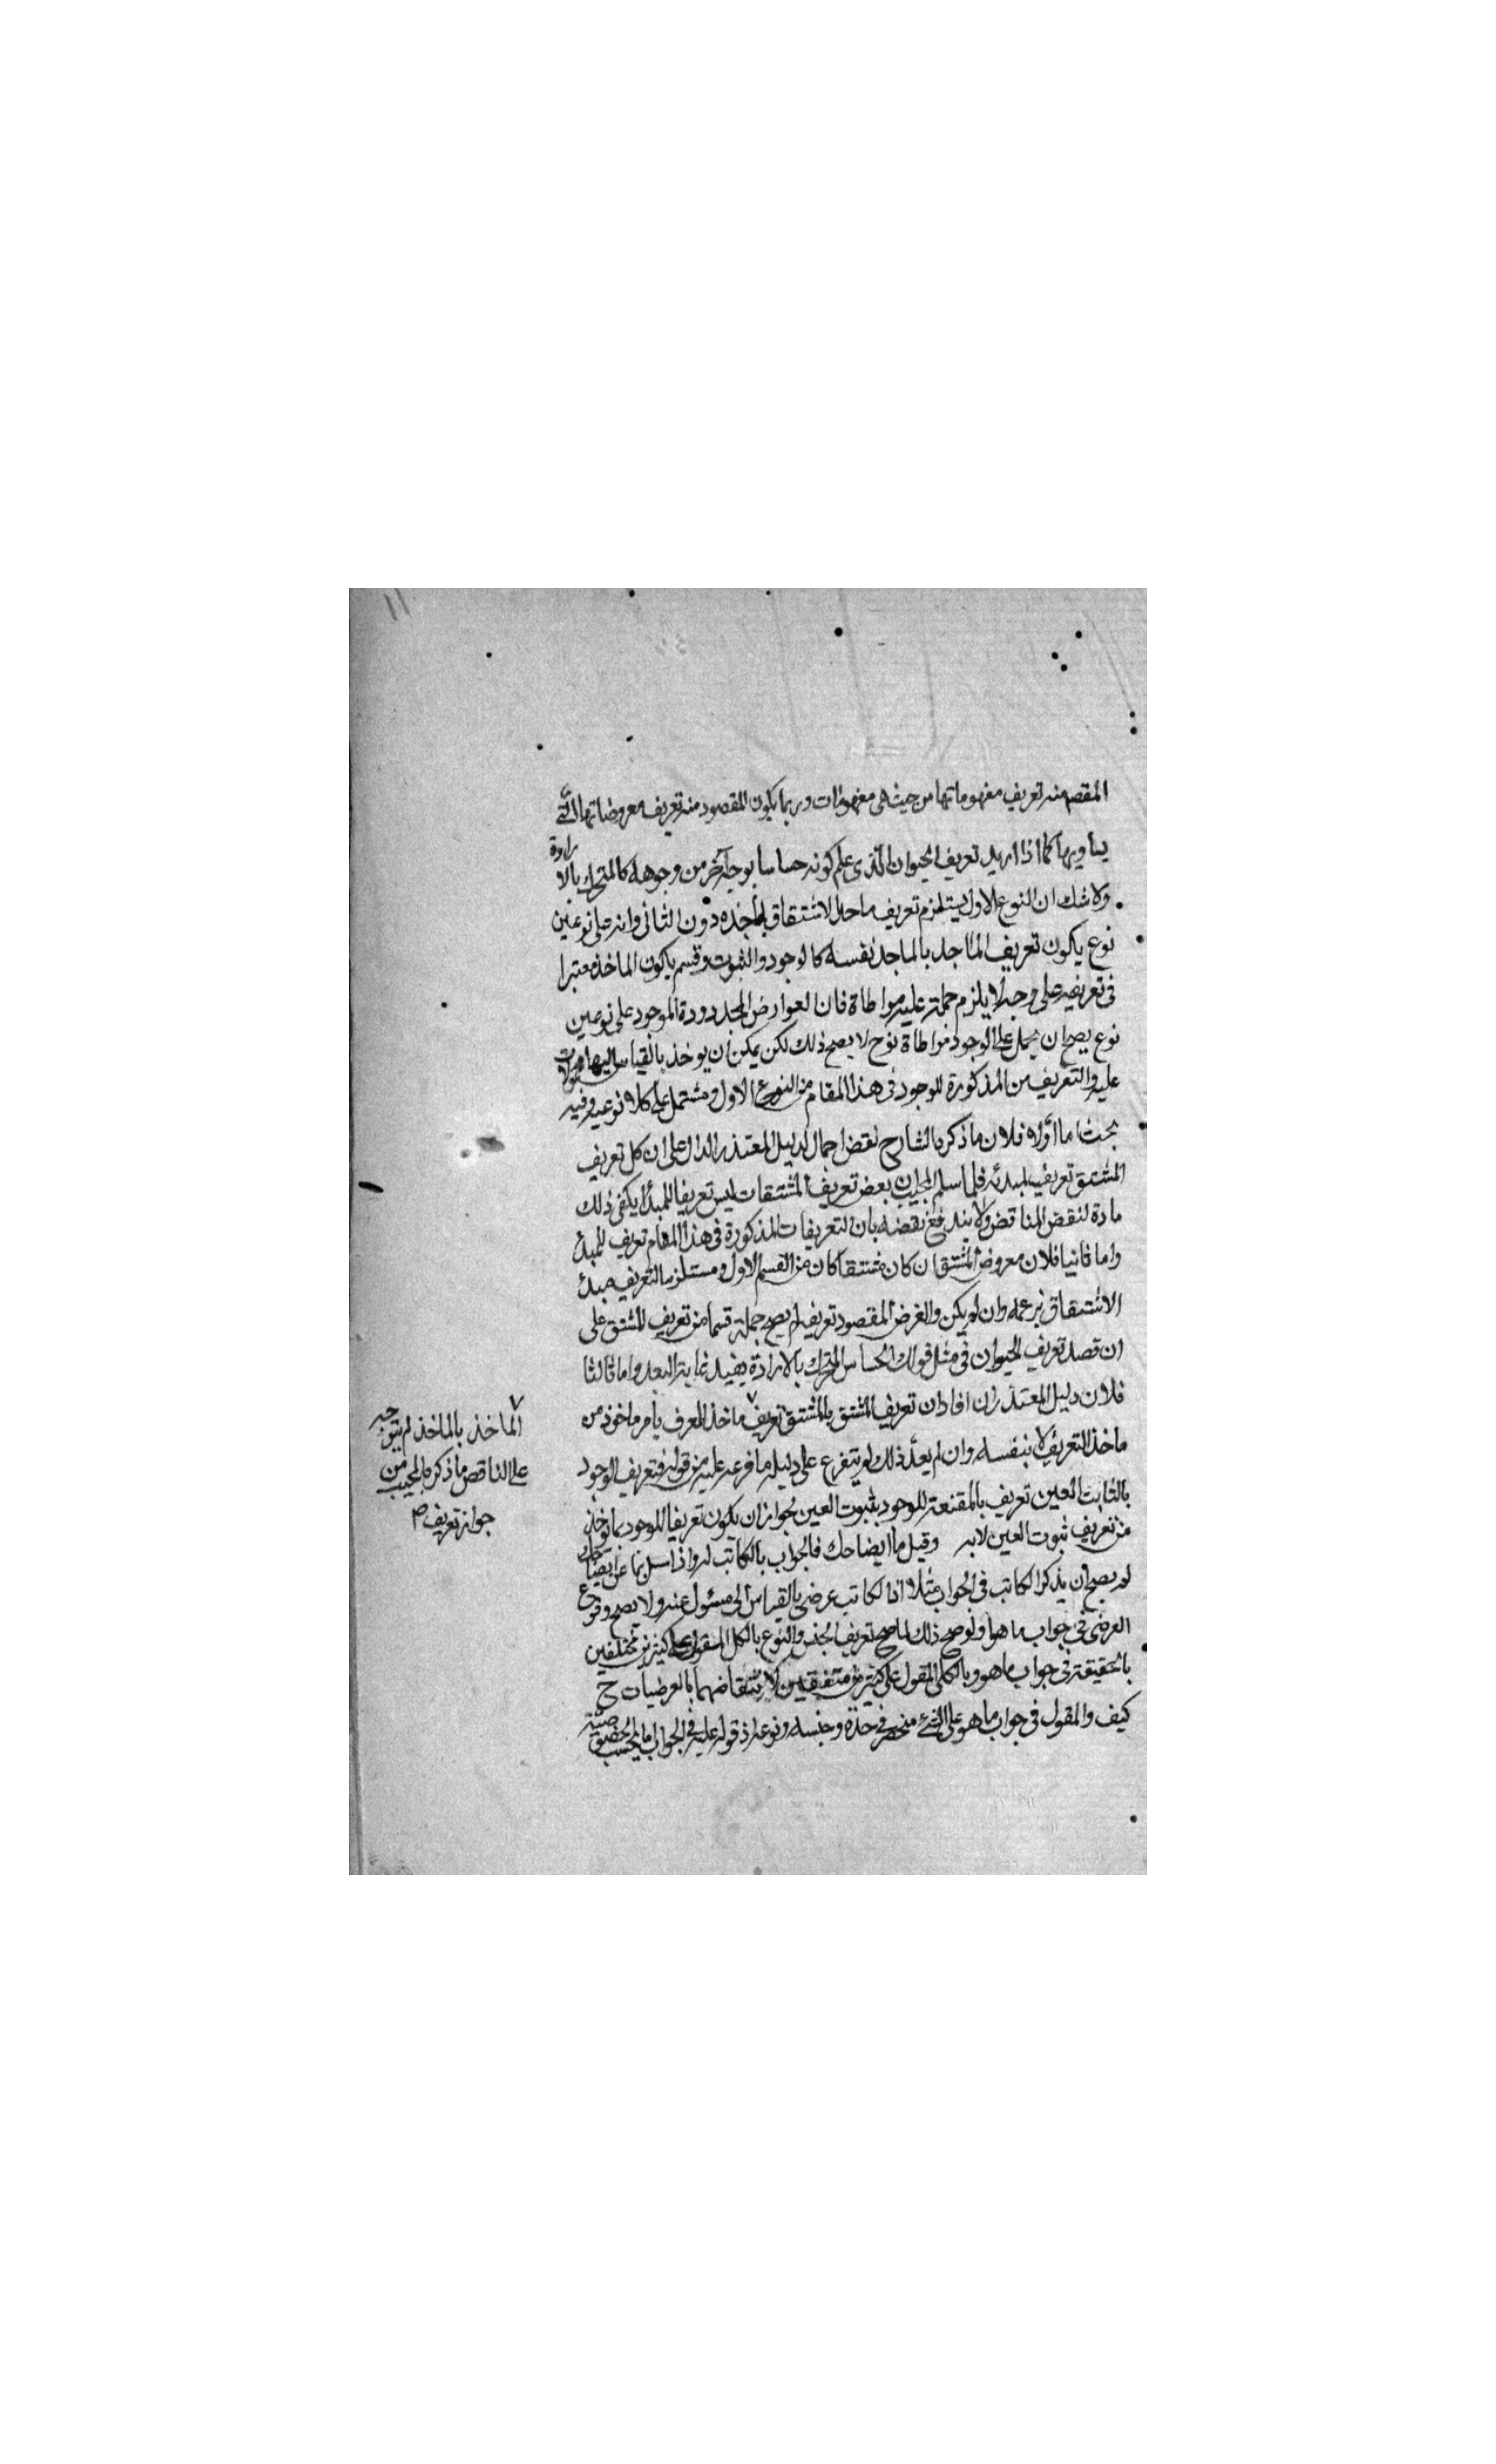 المقصد منه تعريف مفهوماتها من حيث هى مفهومات وربما يكون المقصود منه تعريف معروضاتها التى
يساويها كما اذا اريد تعريف الحيوان الذى علم كونه حساسا بوجه آخر من وجوهه كالمتحرك بالارادة
ولا شك ان النوع الاول يستلزم تعريف ماخذ الاشتقاق بماخذه دون الثانى وانه على نوعين
نوع يكون تعريف الماخذ بالماخذ نفسه كالوجود والثبوت وقسم يكون الماخذ معتبرا
فى تعريفه على وجه لا يلزم حمله عليه مواطاة فان العوارض المحدودة الموجود على نوعين
نوع يصح ان يحمل على الوجود مواطاة نوع لا يصح ذلك لكن يمكن ان يوخذ بالقياس اليها
عليه والتعريف من المذكورة للوجود فى هذا المقام من النوع الاول ومشتمل على كلا نوعيه وفيه
بحث اما اولا فلان ما ذكره الشارح نقض اجمال لدليل المعتذر الدال على ان كل تعريف
المشتق تعريف لمبدئه فلما سلم المجيب ان بعض تعريف المشتقات ليس تعريفا للمبدأ يكفى ذلك
مادة لنقض المناقض ولا يندفع نقضه بان التعريفات المذكورة فى هذا المقام تعريف للمبدأ
واما ثانيا فلان معروض المشتق ان كان مشتقا كان من القسم الاول ومستلزما لتعريف مبدأ
الاشتقاق بزعمه وان لم يكن والغرض المقصود تعريفه لم يصح جملة قسما من تعريف المشتق على
ان قصد تعريف الحيوان فى مثل قولك الحساس المتحرك بالارادة بعيد غاية البعد واما ثالثا
فلان دليل المعتذر ان افاد ان تعريف المشتق بالمشتق تعريف ماخذ المعرف بامر ماخوذ من
ماخذ التعريف لا بنفسه وان لم يعد ذلك لم يتفرع على دليله ما فرعه عليه من قوله فتعريف الوجود
بالثابت العين تعريف بالحقيقة للوجود بثبوت العين لجواز ان يكون تعريفا للوجود بما يوخذ
من تعريف ثبوت العين لا به وقيل ما ايضاحك فالجواب بالكاتب له واذا سئل بما عن ايضاحك
لم يصح ان يذكر الكاتب فى الجواب مثلا اذ الكاتب عرضى بالقياس الى مسئول عنه ولا يصح وقوع
العرضى فى جواب ما هو ولو صح ذلك لما صح تعريف الجنس والنوع بالكلى المقول على كثيرين مختلفين
بالحقيقة فى جواب ما هو وبالكلى المقول على كثيرين متفقين لانتقاضهما بالعرضيات ح
كيف والمقول فى جواب ما هو على الشئ منحصر فى حده وجنسه ونوعه اذ قوله عليه فى الجواب اما بحسب الخصوصية
الماخذ بالماخذ لم يتوجه
على الناقض ما ذكره المجيب من
جواز تعريف ص